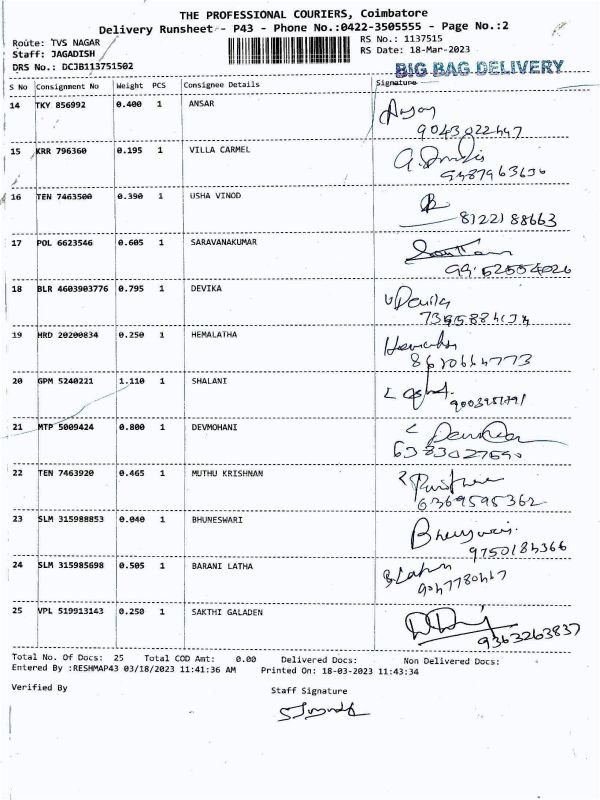 THE PROFESSIONAL COURIERS, Coimbatore
Delivery Runsheet - P43 - Phone No.:0422-3505555 - Page No.:2
Route: TVS NAGAR
RS No.: 1137515
Staff: JAGADISH
RS Date: 18-Mar-2023
DRS No.: DCJB113751502
BIG BAG DELIVERY
S No Consignment No Weight PCS Consignee Details Signature
14 TKY 856992 0.400 1 ANSAR
15 KRR 796360 0.195 1 VILLA CARMEL
16 TEN 7463500 0.390 1 USHA VINOD
8122188663
17 POL 6623546 0.605 1 SARAVANAKUMAR
18 BLR 4603903776 0.795 1 DEVIKA
19 HRD 20200834 0.250 1 HEMALATHA
20 GPM 5240221 1.110 1 SHALANI
21 MTP 5009424 0.800 1 DEVMOHANI
22 TEN 7463920 0.465 1 MUTHU KRISHNAN
6369595362
23 SLM 315988853 0.040 1 BHUNESWARI
9750184366
24 SLM 315985698 0.505 1 BARANI LATHA
25 VPL 519913143 0.250 1 SAKTHI GALADEN
9363263837
Total No. Of Docs: 25 Total COD Amt: 0.00 Delivered Docs: Non Delivered Docs:
Entered By :RESHMAP43 03/18/2023 11:41:36 AM Printed On: 18-03-2023 11:43:34
Verified By Staff Signature